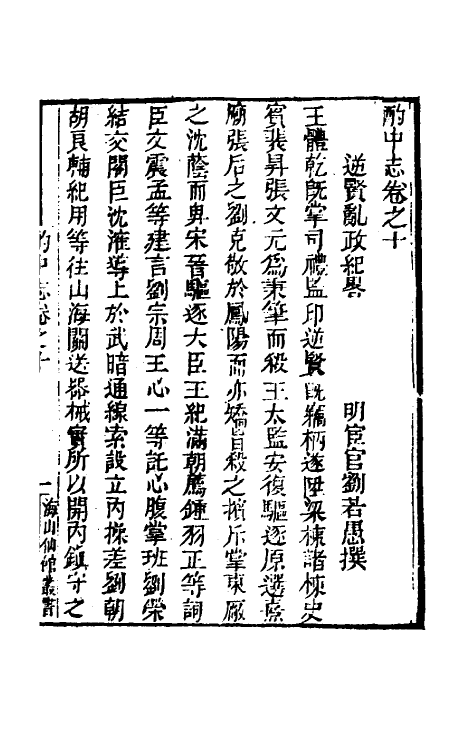 酌中志卷之十
逆賢亂政紀畧
明宦官劉若愚撰
王體乾旣掌司禮監印逆賢旣竊柄遂陞梁棟諸棟史
賓裴昇張文元爲秉筆而殺王太監安復驅逐原選熹
廟張后之劉克敬於鳳陽而亦矯旨殺之擯斥掌東厰
之沈䕃而畀宋晉驅逐大臣王紀滿朝薦鍾羽正等詞
臣文震孟等建言劉宗周王心一等託心腹掌班劉榮
結交閣臣沈㴶導上於武暗通線索設立內操差劉朝
胡良輔紀用等往山海關送器械實所以開內鎮守之
酌中志卷之十
一
海山仙館叢書